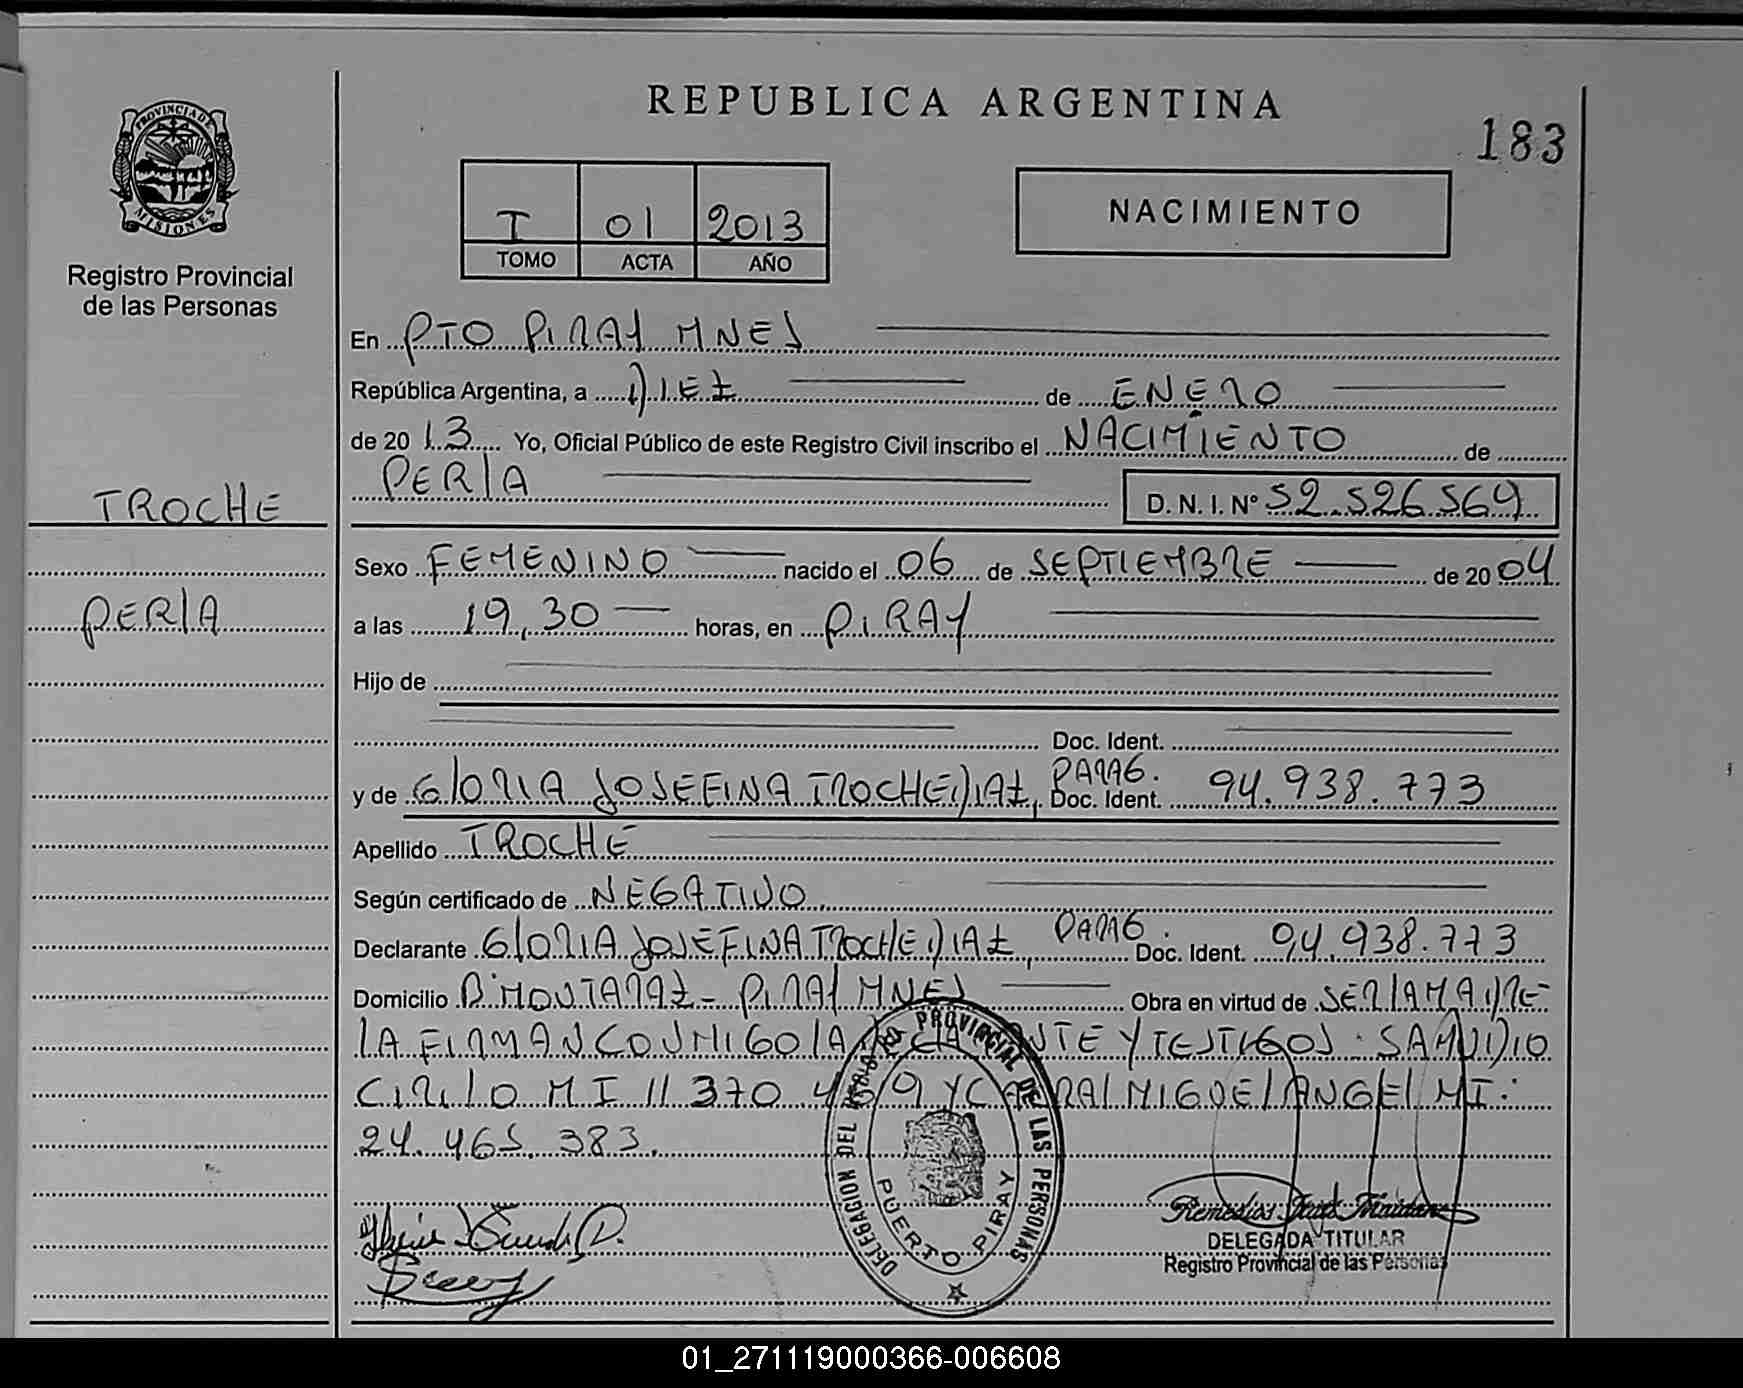 REPUBLICA ARGENTINA
183
PROVINCIA DE
MISIONES
Registro Provincial
de las Personas
I 01 2013
TOMO ACTA AÑO
NACIMIENTO
En PTO PIRAY MNES
República Argentina, a DIEZ de ENERO
de 2013 Yo, Oficial Público de este Registro Civil inscribo el NACIMIENTO de
PERlA D. N. I. Nº 52.526.569
TROCHE
PERlA
Sexo FEMENINO nacido el 06 de SEPTIEMBRE de 2004
a las 19,30 horas, en PIRAY
Hijo de
Doc. Ident.
y de GlORIA JOSEFINA TROCHE DIAZ, PARAG. Doc. Ident. 94.938.773
Apellido TROCHE
Según certificado de NEGATIVO.
Declarante GlORIA JOSEFINA TROCHE DIAZ, PARAG. Doc. Ident. 94.938.773
Domicilio Bº MONTARAZ - PIRAY MNES Obra en virtud de SER lA MADRE
lA FIRMAN CONMIGO lA TE Y TESTIGOS. SAMUDIO
CIRIlO M I 11 370 Y MIGUEl ANGEl MI:
24.465.383.
DELEGACION DEL REGISTRO PROVINCIAL DE LAS PERSONAS
PUERTO PIRAY
DELEGADA TITULAR
Registro Provincial de las Personas
01_271119000366-006608